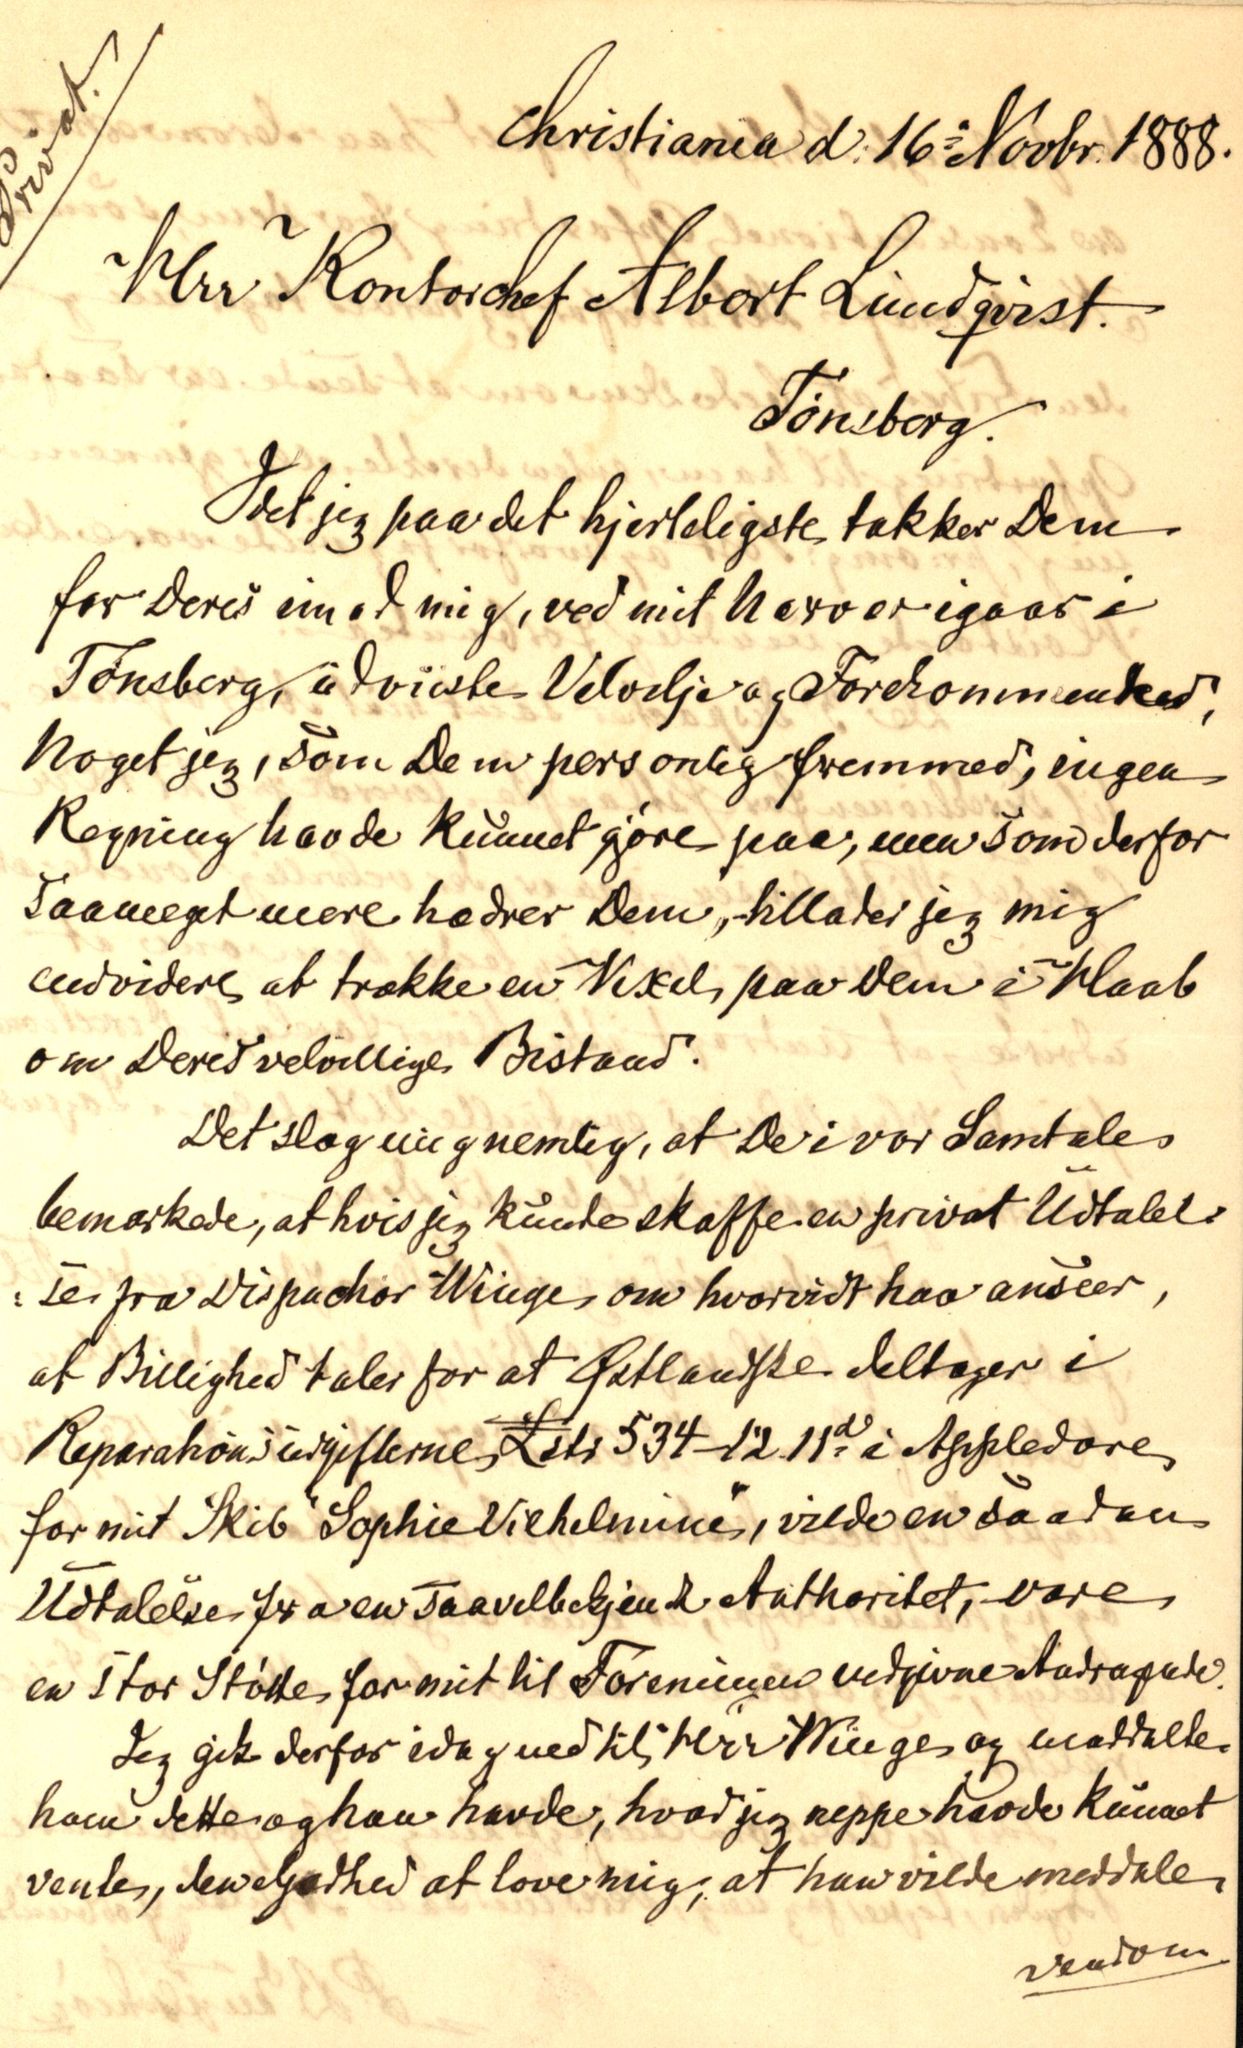 Privat.
Christiania d: 16de Novbr. 1888.
Herr Kontorchef Albert Lundqvist.
Tönsberg.
Idet jeg paa det hjerteligste takker Dem
for Deres imod mig, ved mit Nærvær igaar i
Tönsberg, udviiste Velvilje og Forekommenhed,
Noget jeg, som Dem personlig fremmed, ingen
Regning havde kunnet gjöre paa, men som derfor
saameget mere hædrer Dem, tillader jeg mig
endvidere at trække en Vexel paa Dem i Haab
om Deres velvillige Bistand.
Det slog mig nemlig, at De i vor Samtale
bemærkede, at hvis jeg kunde skaffe en privat Udtalel-
se fra Dispachør Winge om hvorvidt han anseer,
at Billighed taler for at Østlandske deltager i
Reparationsudgifterne Lstr 534-12.11d i Appledore
for mit Skib "Sophie Vilhelmine", vilde en saadan
Udtalelse fra en saavelbekjendt Authoritet, være
en stor Stötte for mit til Foreningen indgivne Andragende.
Jeg gik derfor idag ned til Herr Winge og meddelte
ham dette og han havde, hvad jeg neppe havde kunnet
vente, den Godhed at love mig, at han vilde meddele
vendom